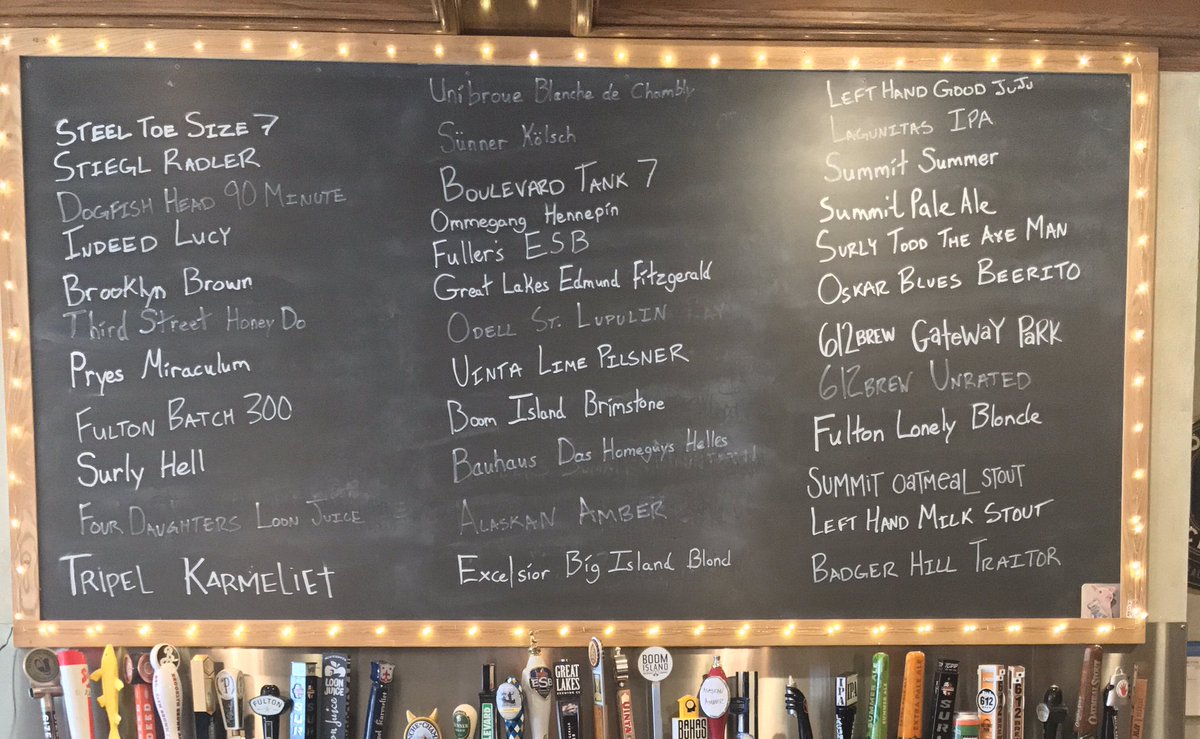 STEEL TOE SIZE 7
STIEGL RADLER
DOGFISH HEAD 90 MINUTE
INDEED LUCY
Brooklyn Brown
Third Street Honey Do
Pryes Miraculum
FULTON BATCH 300
Surly Hell
FOUR DAUGHTERS LOON JUICE
TRIPEL KARMELIET
Unibroue Blanche de Chambly
Sünner Kölsch
BOULEVARD TANK 7
Ommegang Hennepin
Fuller's ESB
Great Lakes Edmund Fitzgerald
ODELL ST. LUPULIN
UINTA LIME PILSNER
Boom Island Brimstone
Bauhaus Das Homeguys Helles
ALASKAN AMBER
Excelsior Big Island Blond
LEFT HAND GOOD JUJU
LAGUNITAS IPA
Summit Summer
Summit Pale Ale
SURLY TODD THE AXE MAN
OSKAR BLUES BEERITO
612BREW GATEWAY PARK
612BREW UNRATED
Fulton Lonely Blonde
SUMMIT OATMEAL STOUT
LEFT HAND MILK STOUT
BADGER HILL TRAITOR
FULTON
LOON JUICE
ESB
GREAT LAKES
BOOM ISLAND
IPA
612